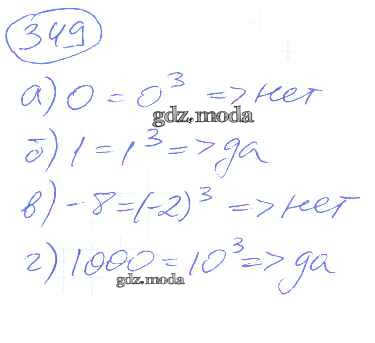 349
а) 0 = 0³ => нет
gdz.moda
б) 1 = 1³ => да
в) -8 = (-2)³ => нет
г) 1000 = 10³ => да
gdz.moda